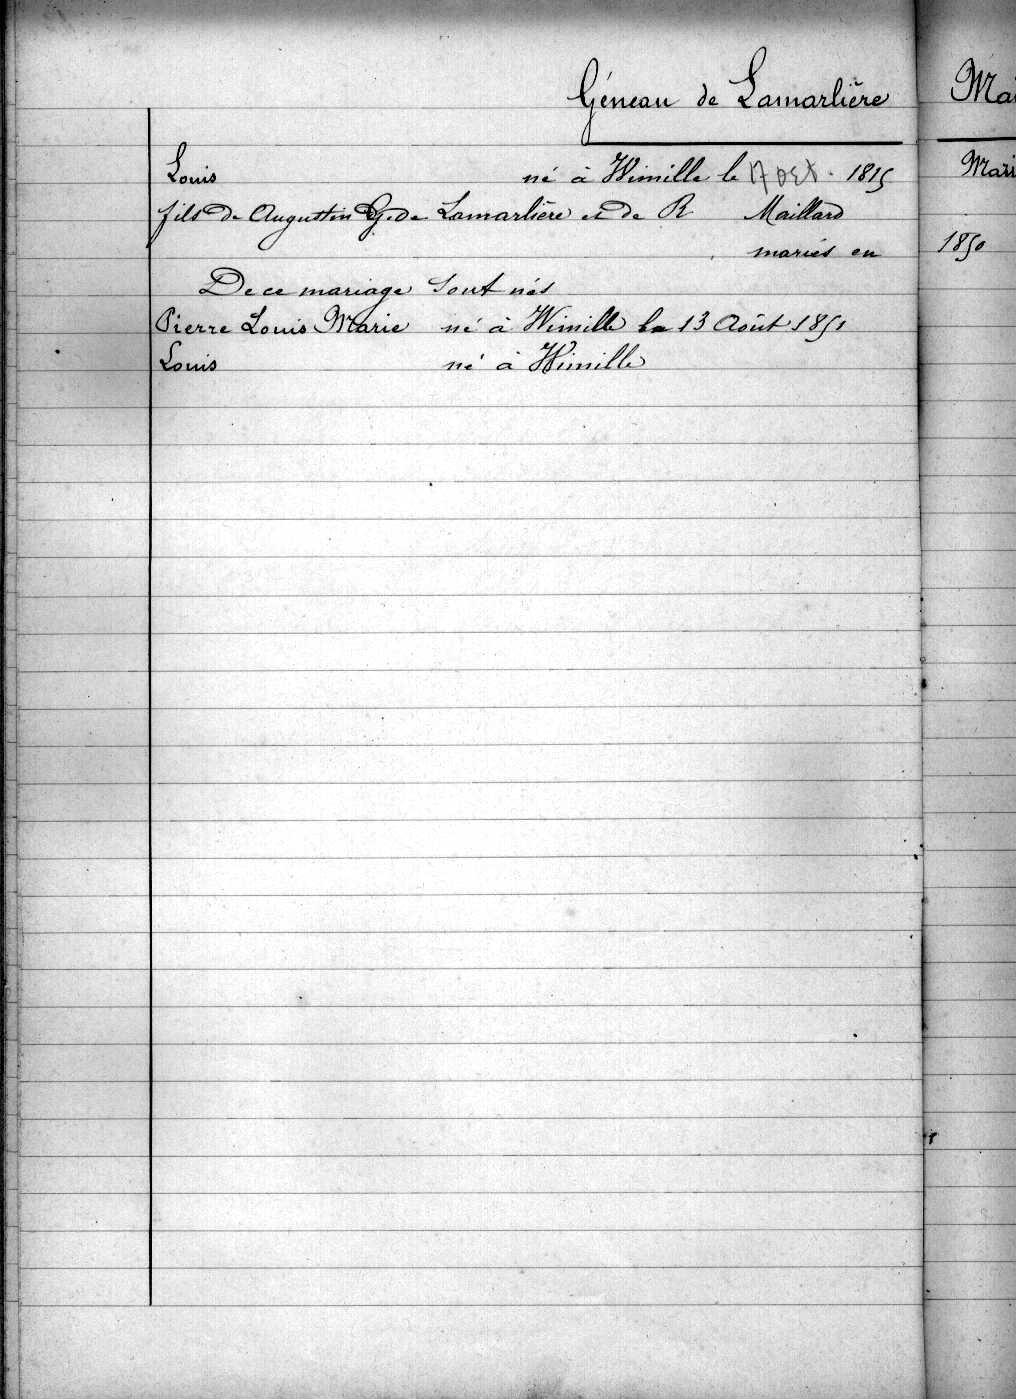 Géneau de Lamarlière
Louis né à Wimille le 17 oct. 1815
fils de Augustin G. de Lamarlière et de R Maillard
mariés en 1850
De ce mariage sont nés
Pierre Louis Marie né à Wimille le 13 Août 1851
Louis né à Wimille
Mai
Mari